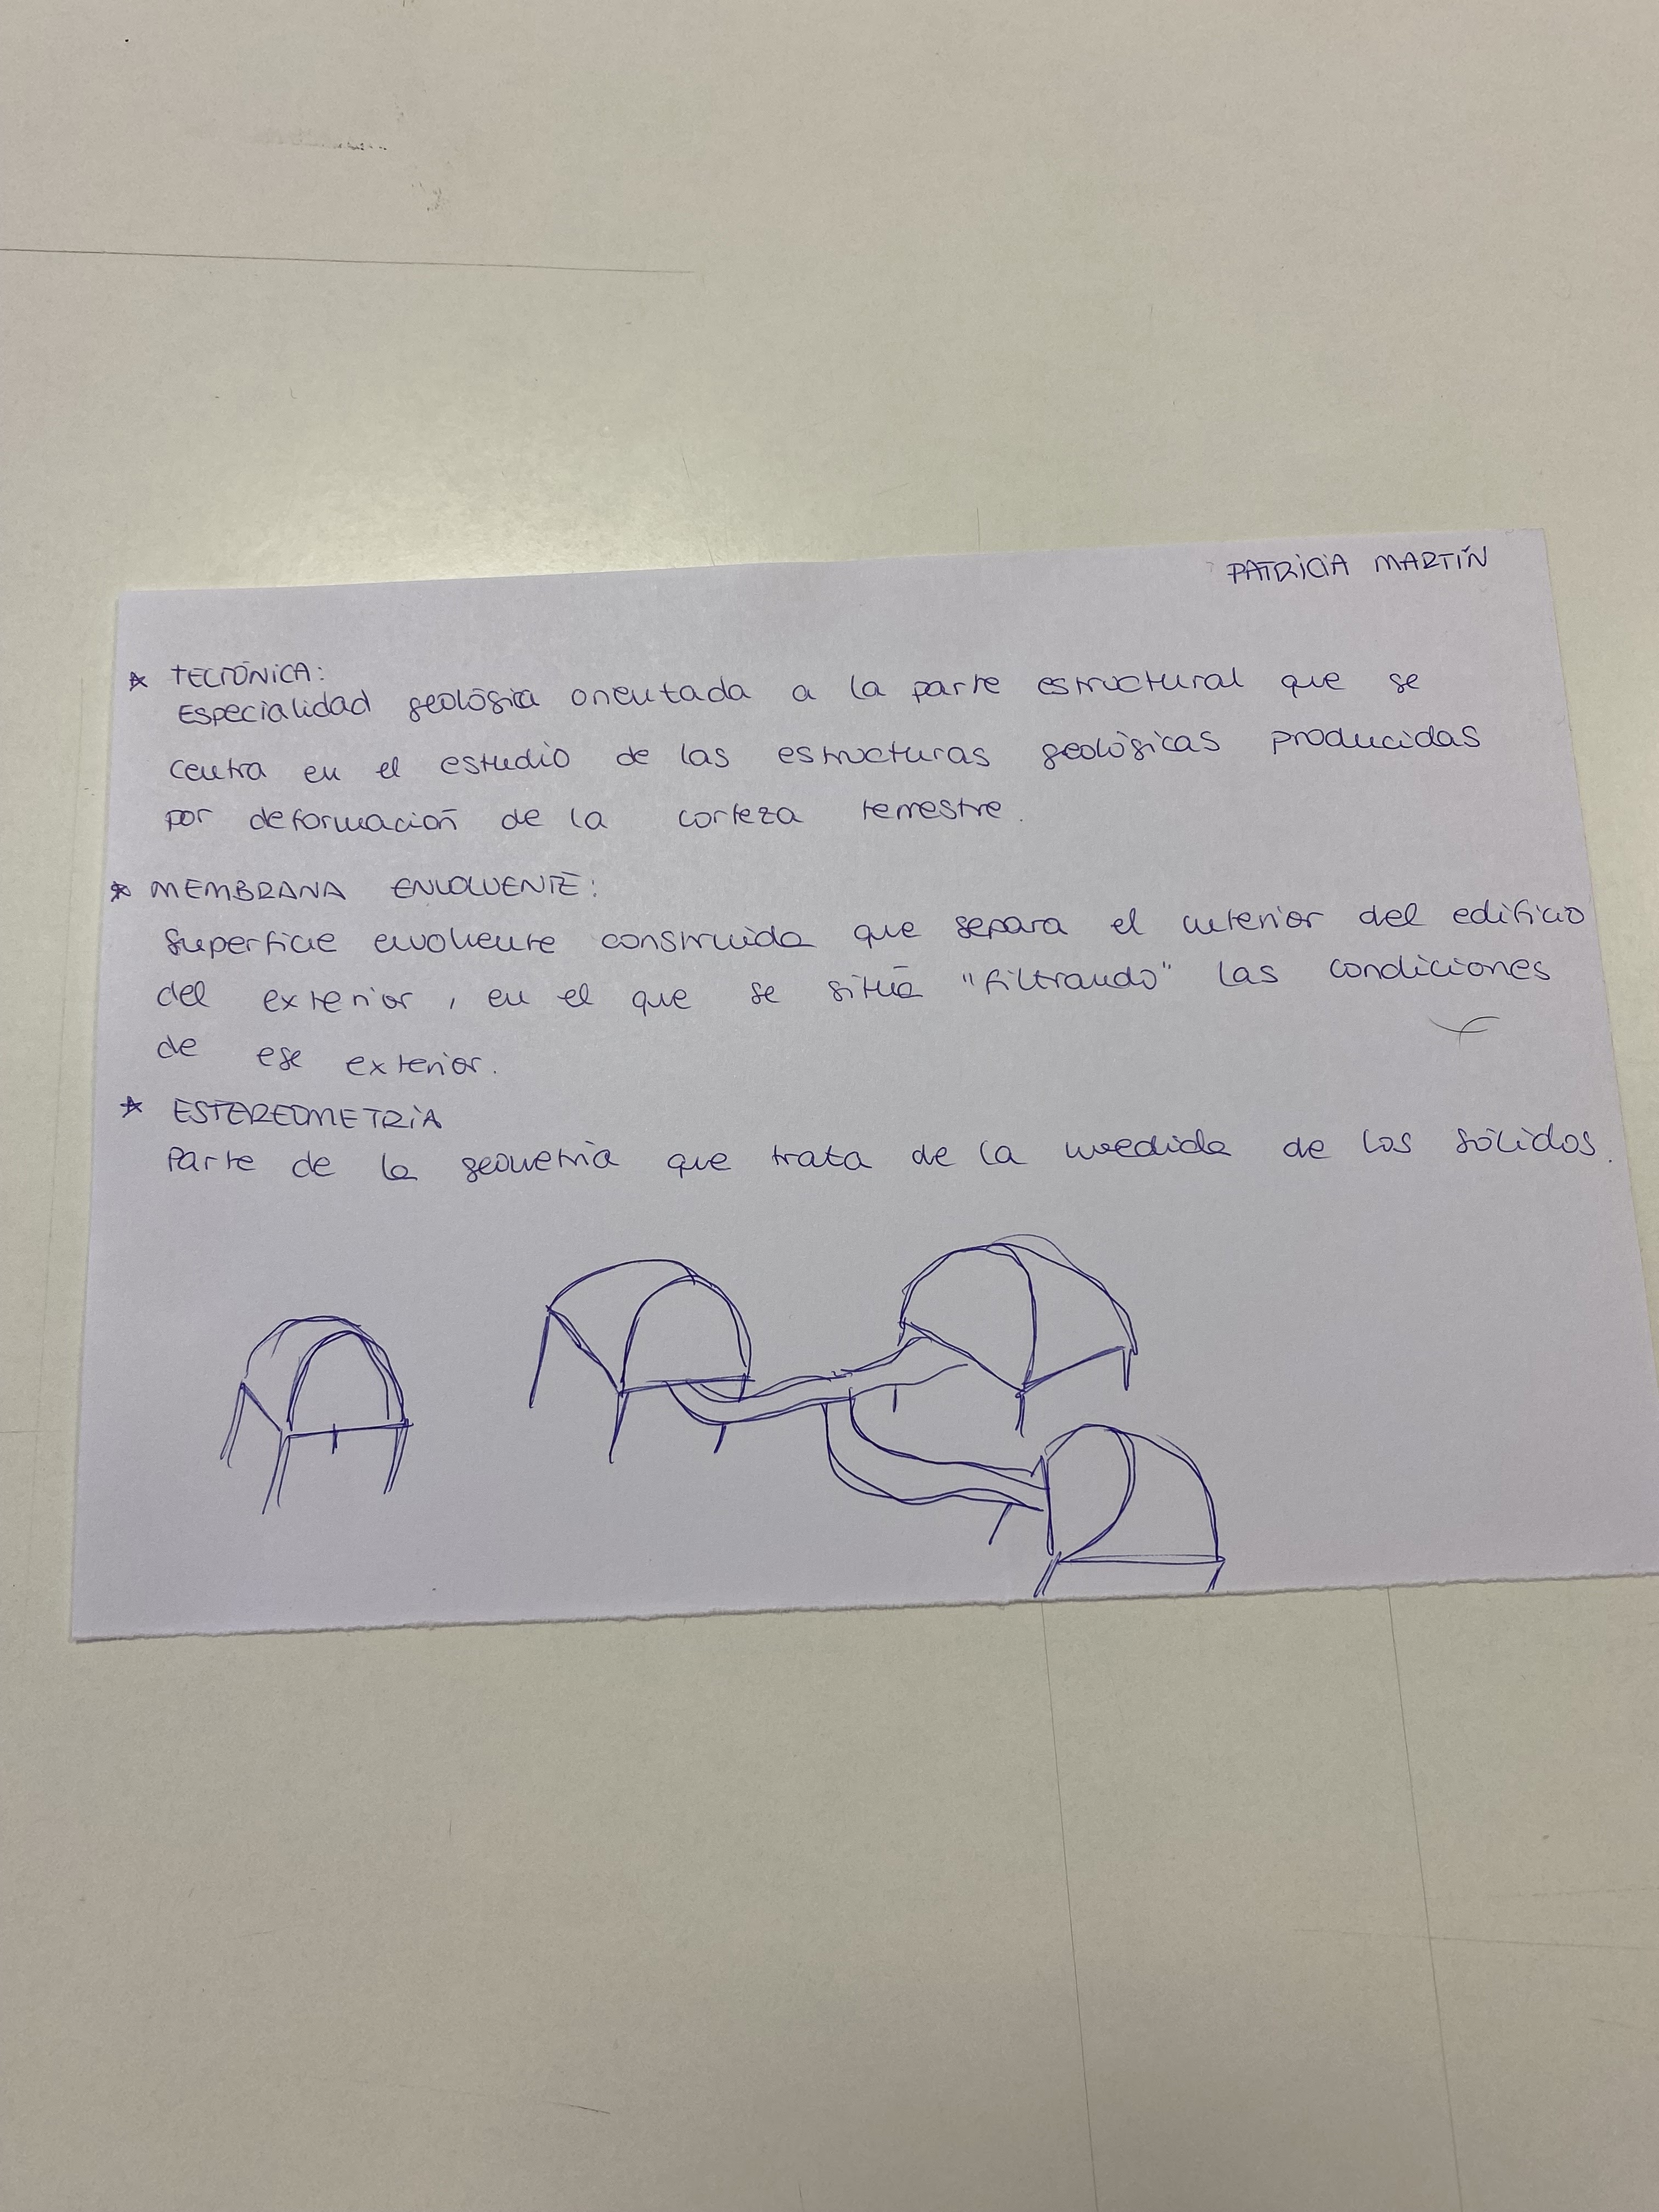 PATRICIA MARTÍN
* TECTÓNICA:
Especialidad geológica orientada a la parte estructural que se
centra en el estudio de las estructuras geológicas producidas
por deformación de la corteza terrestre.
* MEMBRANA ENVOLVENTE:
Superficie envolvente construida que separa el interior del edificio
del exterior, en el que se sitúa "filtrando" las condiciones
de ese exterior.
* ESTEREOMETRÍA
Parte de la geometría que trata de la medida de los sólidos.